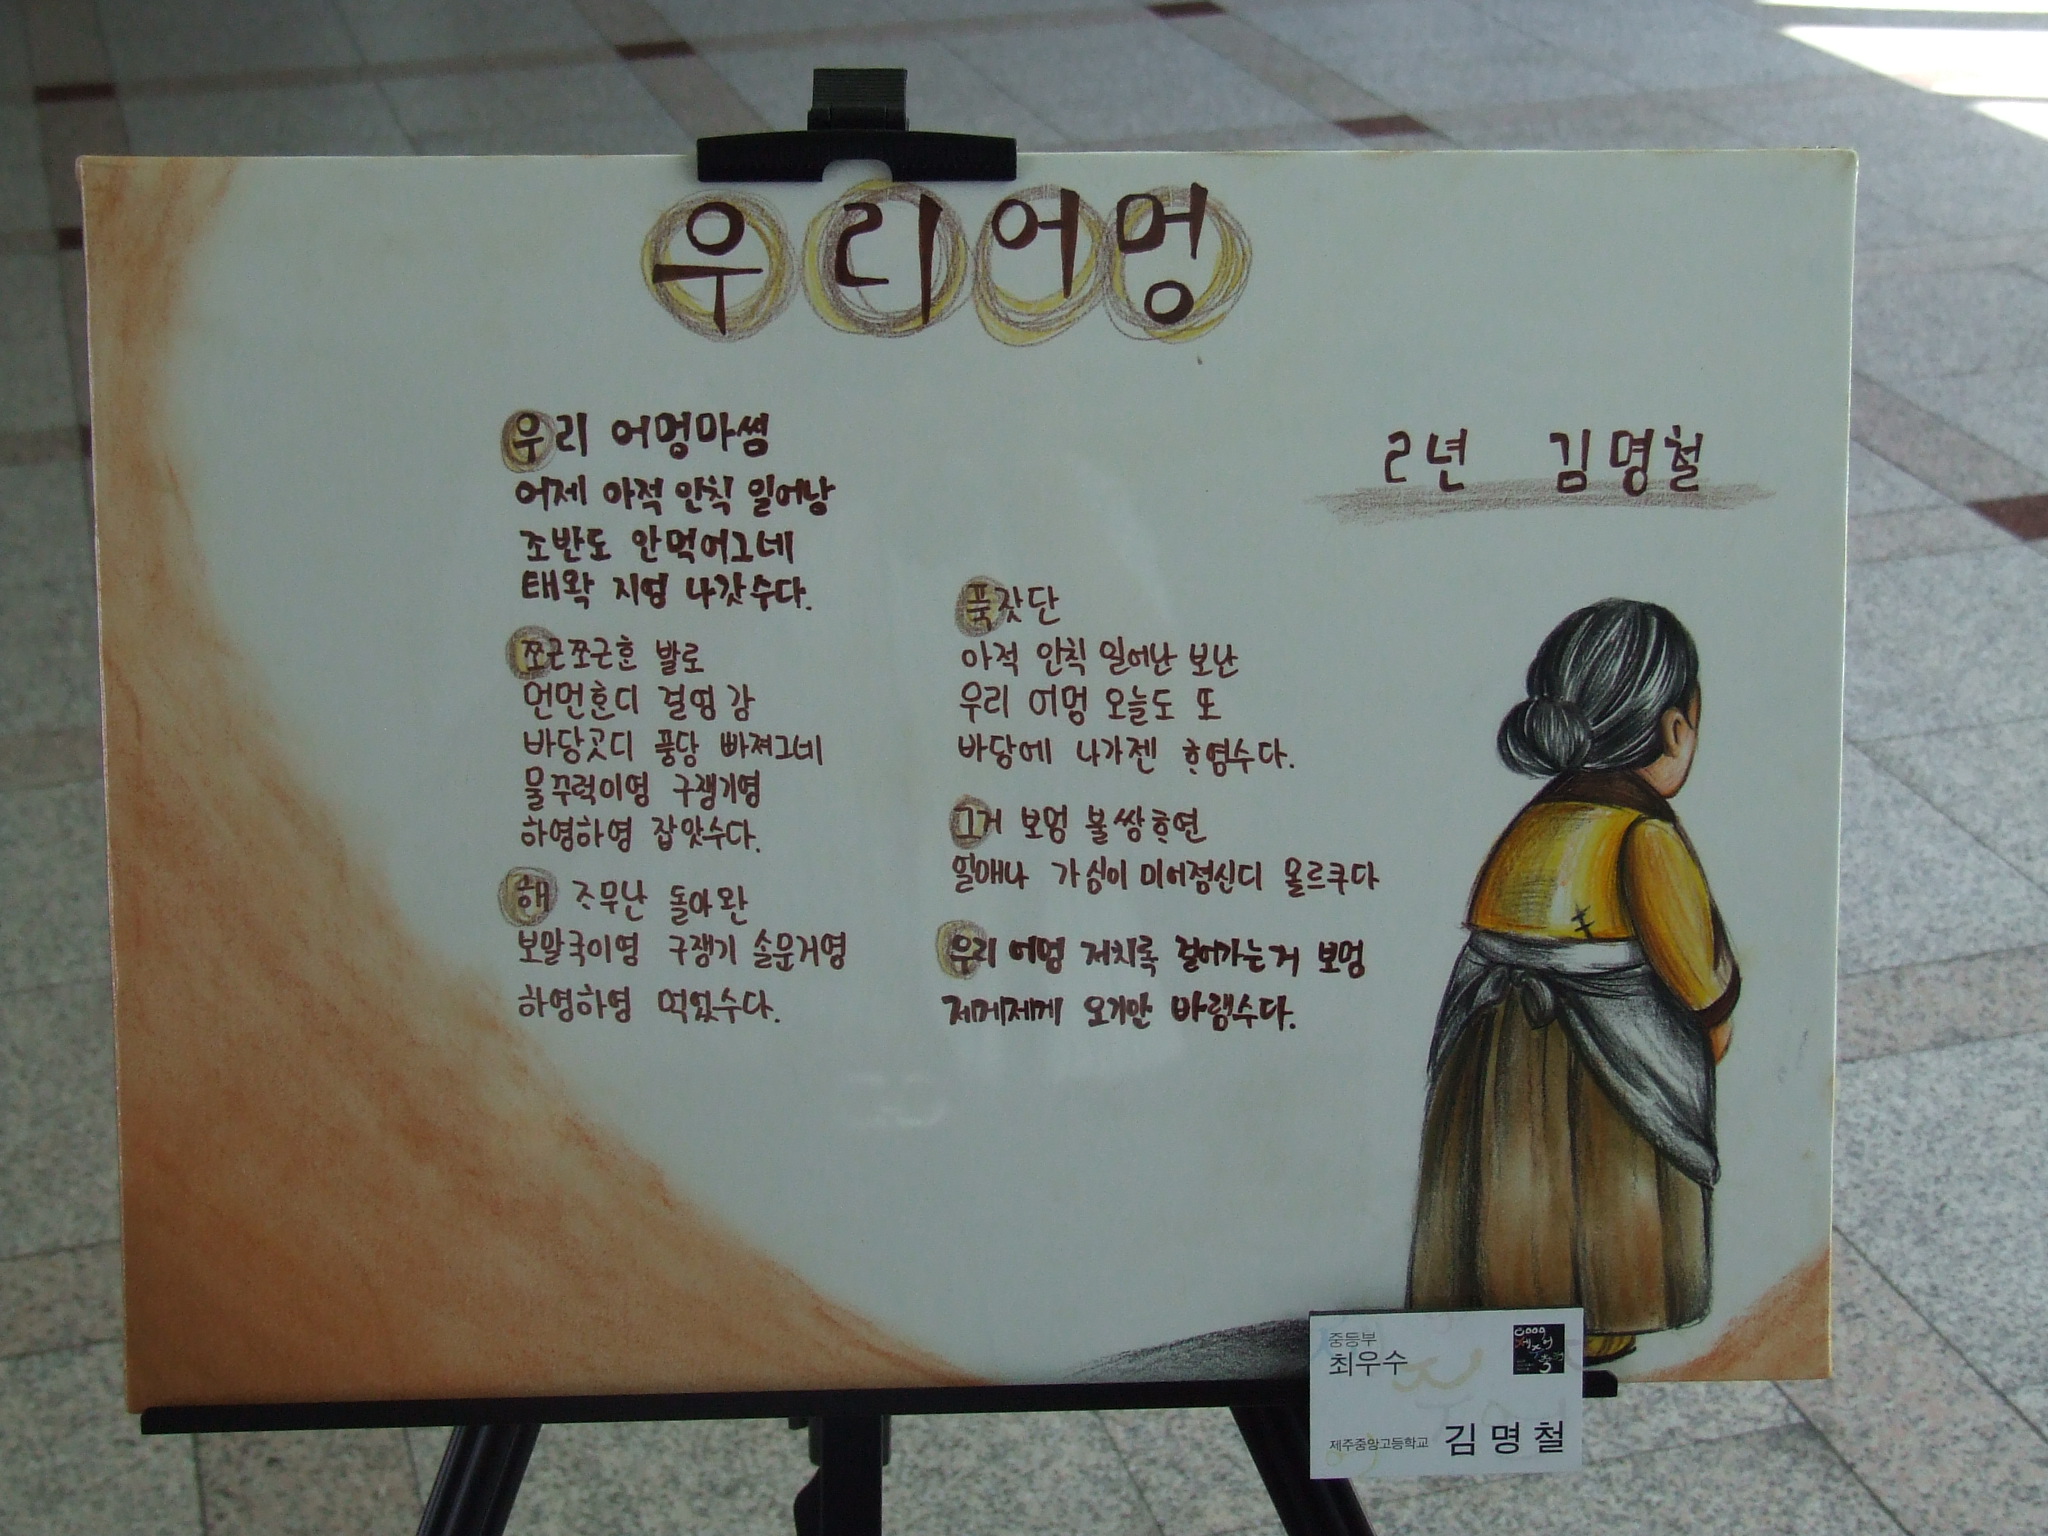 우리어멍
2년 김명철
우리 어멍마씸
어제 아적 인칙 일어낭
조반도 안먹어그네
태왁 지영 나갓수다.
쪼근쪼근ᄒᆞᆫ 발로
먼먼ᄒᆞᆫ디 걸영 감
바당곳디 풍당 빠져그네
물꾸럭이영 구쟁기영
하영하영 잡앗수다.
해 ᄌᆞ무난 돌아완
보말국이영 구쟁기 솔문거영
하영하영 먹엇수다.
푹잣단
아적 인칙 일어난 보난
우리 어멍 오늘도 또
바당에 나가젠 ᄒᆞ염수다.
그거 보멍 불쌍ᄒᆞ연
얼매나 가심이 미어졈신디 몰르쿠다
우리 어멍 저치록 걸어가는거 보멍
제메제게 오기만 바램수다.
중등부
최우수
제주중앙고등학교 김명철